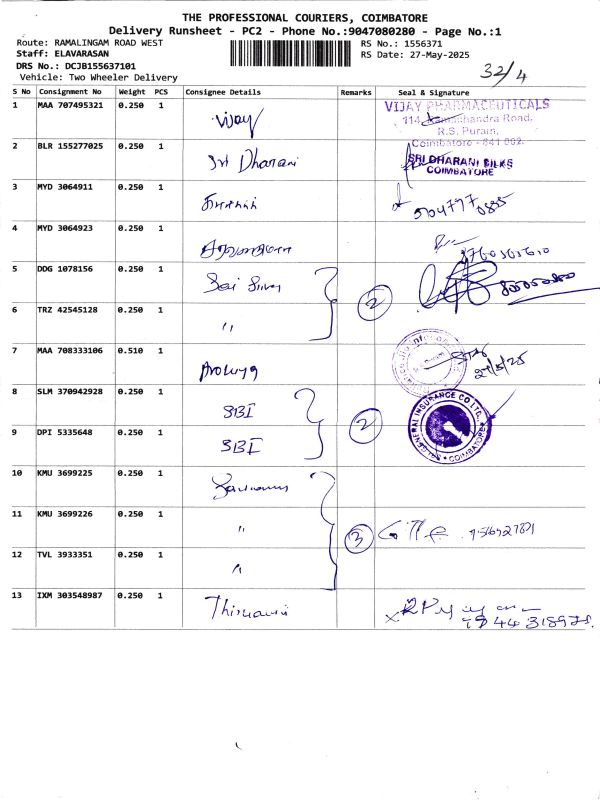 THE PROFESSIONAL COURIERS, COIMBATORE
Delivery Runsheet - PC2 - Phone No.:9047080280 - Page No.:1
Route: RAMALINGAM ROAD WEST RS No.: 1556371
Staff: ELAVARASAN RS Date: 27-May-2025
DRS No.: DCJB155637101
Vehicle: Two Wheeler Delivery 32/4
S No Consignment No Weight PCS Consignee Details Remarks Seal & Signature
1 MAA 707495321 0.250 1 Vijay VIJAY PHARMACEUTICALS
114, Ramachandra Road,
R.S. Puram,
Coimbatore - 641 002.
2 BLR 155277025 0.250 1 Sri Dharani SRI DHARANI SILKS
COIMBATORE
3 MYD 3064911 0.250 1
4 MYD 3064923 0.250 1
5 DDG 1078156 0.250 1 Sai 2
6 TRZ 42545128 0.250 1 "
7 MAA 708333106 0.510 1 27/5/25
8 SLM 370942928 0.250 1 SBI 2 GENERAL INSURANCE CO. LTD.
COIMBATORE
9 DPI 5335648 0.250 1 SBI
10 KMU 3699225 0.250 1
11 KMU 3699226 0.250 1 " 3
12 TVL 3933351 0.250 1 "
13 IXM 303548987 0.250 1